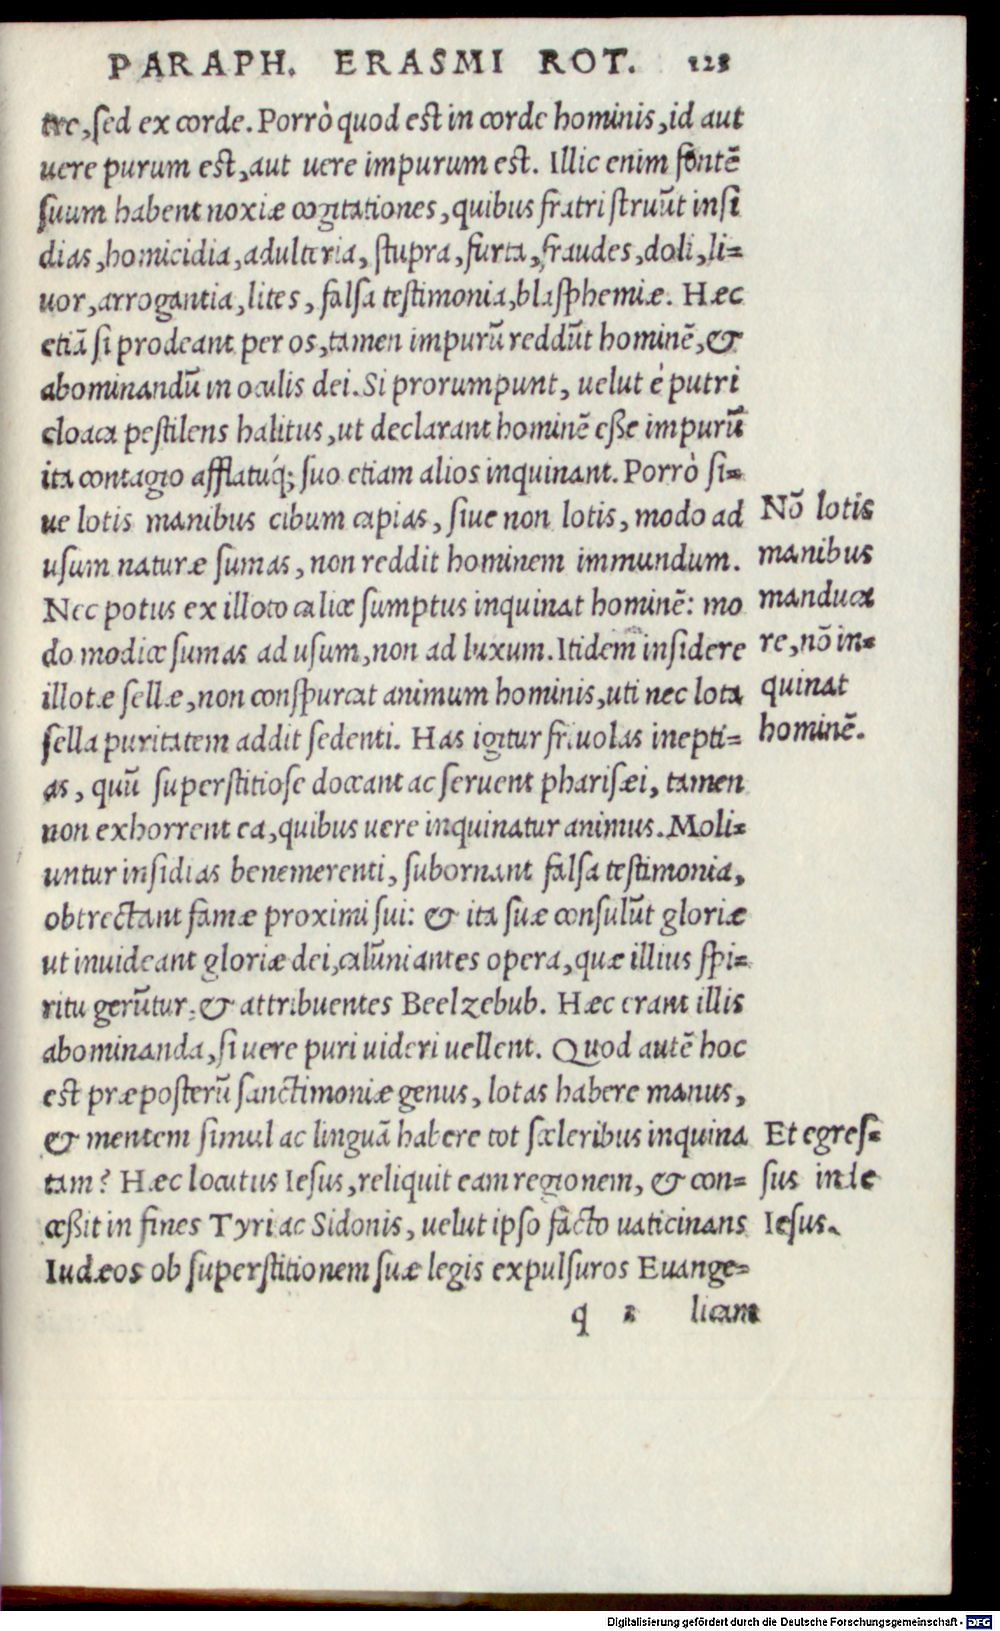 PARAPH. ERASMI ROT. 123
tre, sed ex corde. Porrò quod est in corde hominis, id aut
uere purum est, aut uere impurum est. Illic enim fontẽ
suum habent noxiæ cogitationes, quibus fratri struũt insi
dias, homicidia, adulteria, stupra, furta, fraudes, doli, li=
uor, arrogantia, lites, falsa testimonia, blasphemiæ. Hæc
etiã si prodeant per os, tamen impurũ reddũt hominẽ, &
abominandũ in oculis dei. Si prorumpunt, uelut è putri
cloaca pestilens halitus, ut declarant hominẽ eße impurũ
ita contagio afflatúq; suo etiam alios inquinant. Porrò si=
ue lotis manibus cibum capias, siue non lotis, modo ad
usum naturæ sumas, non reddit hominem immundum.
Nec potus ex illoto calice sumptus inquinat hominẽ: mo
do modice sumas ad usum, non ad luxum. Itidem insidere
illotæ sellæ, non conspurcat animum hominis, uti nec lota
sella puritatem addit sedenti. Has igitur friuolas inepti=
as, quũ superstitiose doceant ac seruent pharisæi, tamen
non exhorrent ea, quibus uere inquinatur animus. Moli=
untur insidias benemerenti, subornant falsa testimonia,
obtrectant famæ proximi sui: & ita suæ consulũt gloriæ
ut inuideant gloriæ dei, calũniantes opera, quæ illius spi=
ritu gerũtur, & attribuentes Beelzebub. Hæc erant illis
abominanda, si uere puri uideri uellent. Quod autẽ hoc
est præposterũ sanctimoniæ genus, lotas habere manus,
& mentem simul ac linguã habere tot sceleribus inquina
tam? Hæc locutus Iesus, reliquit eam regionem, & con=
ceßit in fines Tyri ac Sidonis, uelut ipso facto uaticinans
Iudæos ob superstitionem suæ legis expulsuros Euange=
q 2 licam
Nõ lotis
manibus
manduca
re, nõ in=
quinat
hominẽ.
Et egres=
sus inde
Iesus.
Digitalisierung gefördert durch die Deutsche Forschungsgemeinschaft - DFG